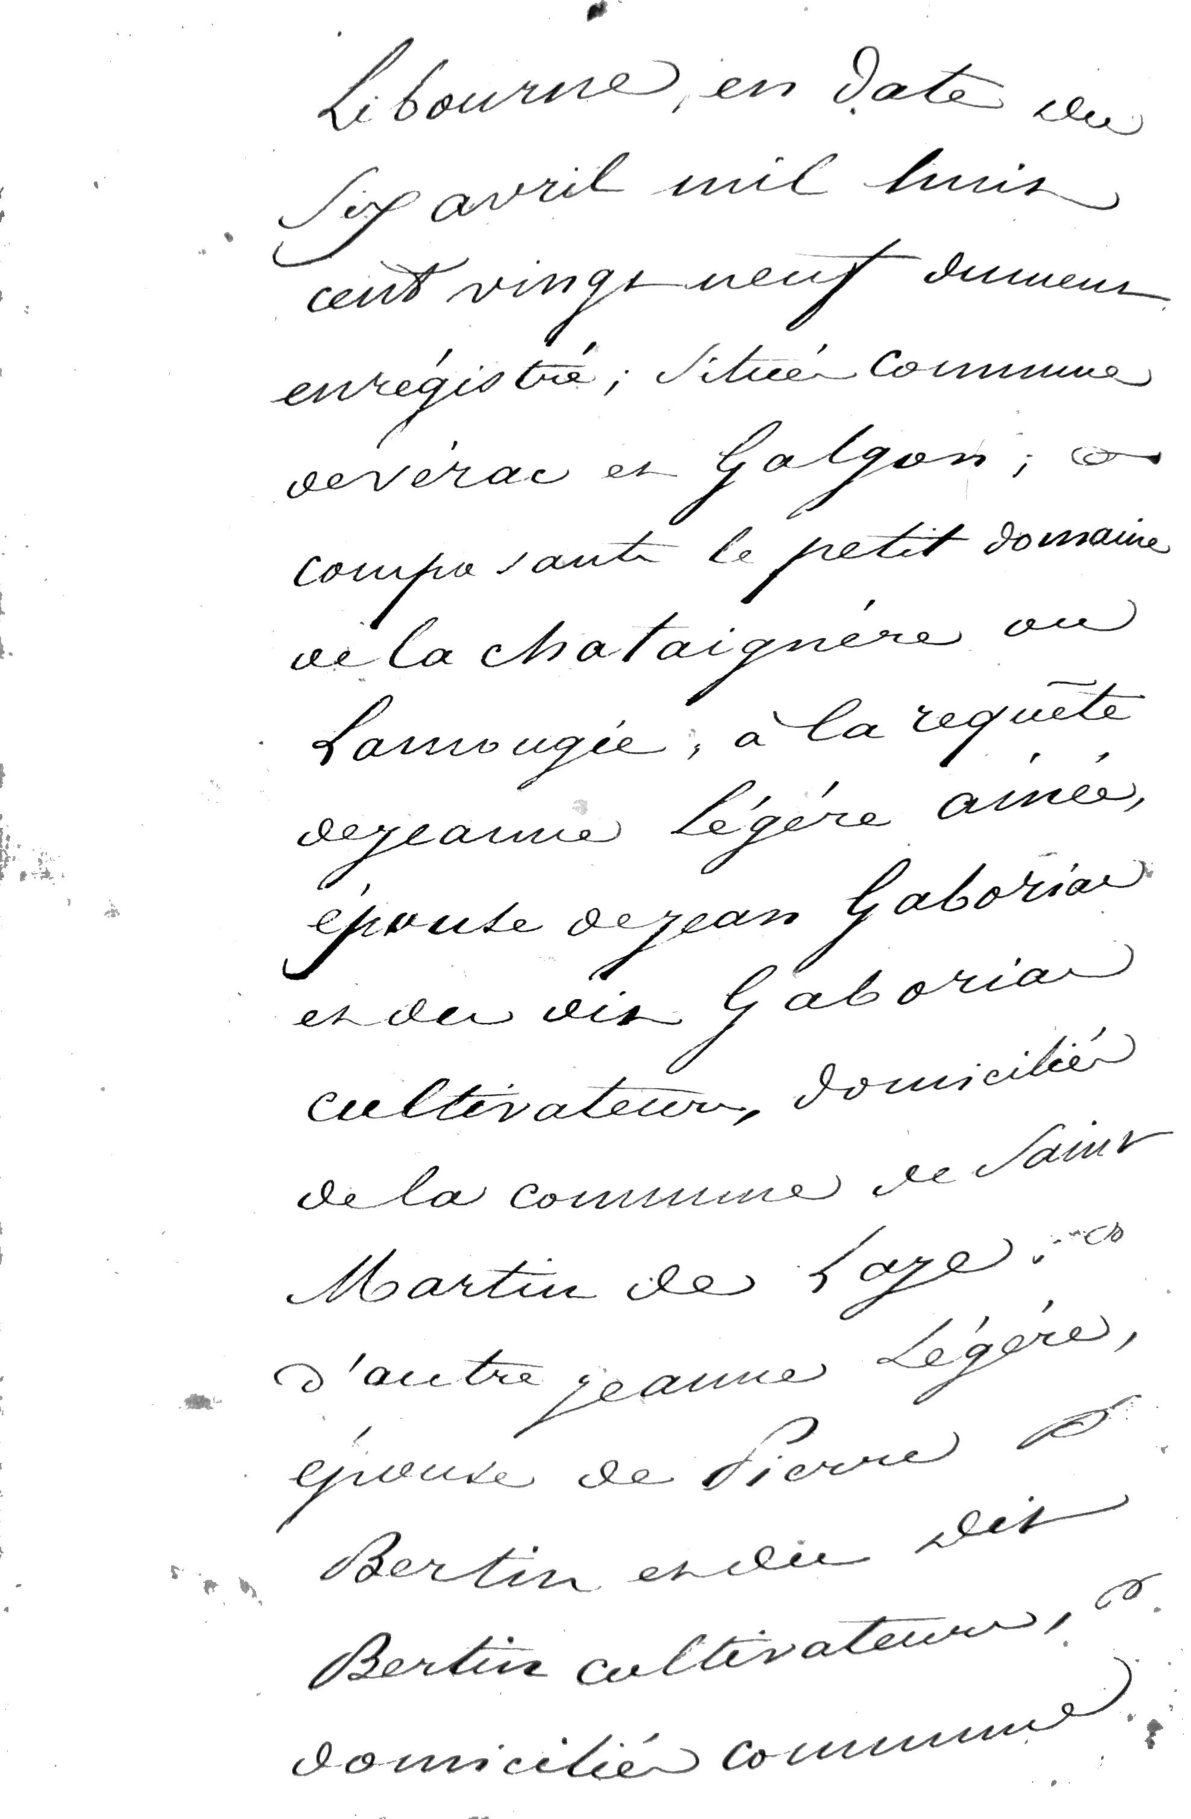 Libourne, en date du
Six avril mil huit
cent vingt neuf dument
enrégistré; situés commune
de vérac et Galgon;
composants le petit domaine
de la chataignére ou
Lamougie, à la requête
de jeanne Légére ainée,
épouse de jean Gaboriau
et du dit Gaboriau
cultivateurs, domiciliés
de la commune de Saint
Martin de Laye.
d'autre jeanne Légére,
épouse de Pierre
Bertin et du dit
Bertin cultivateurs,
domiciliés commune